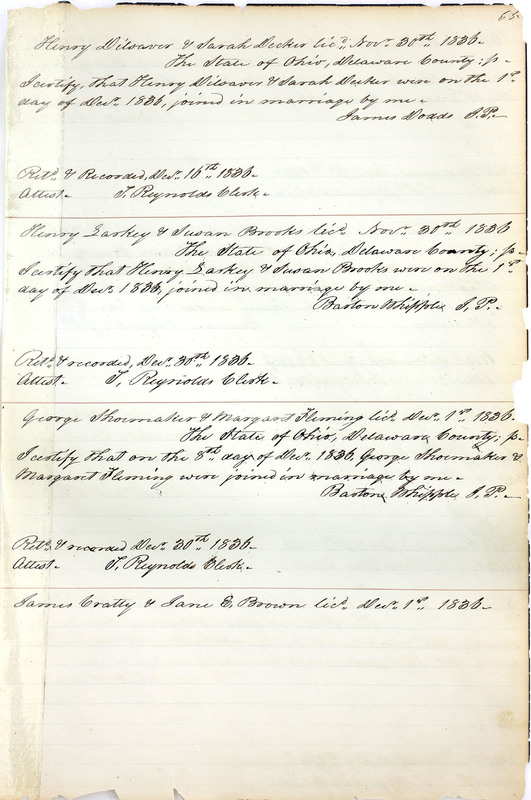 65
Henry Dilsaver & Sarah Decker licd. Novr. 30th 1836.
The State of Ohio, Delaware County; ss.
I certify, that Henry Dilsaver & Sarah Decker were on the 1st
day of Decr. 1836, joined in marriage by me.
James Dodds J.P.
Retd. & Recorded, Decr. 16th 1836.
Attest. T. Reynolds Clerk.
Henry Larkey & Susan Brooks licd. Novr. 30th 1836
The State of Ohio, Delaware County; ss.
I certify that Henry Larkey & Susan Brooks were on the 1st
day of Decr. 1836, joined in marriage by me.
Barton Whipple J.P.
Retd. & recorded, Decr. 30th 1836.
Attest. T. Reynolds Clerk.
George Shoemaker & Margaret Fleming licd. Decr. 1st 1836.
The State of Ohio, Delaware County; ss.
I certify that on the 8th day of Decr. 1836, George Shoemaker &
Margaret Fleming were joined in marriage by me.
Barton Whipple J.P.
Retd. & recorded Decr. 30th 1836.
Attest. T. Reynolds Clerk.
James Cratty & Jane E. Brown licd. Decr. 1st 1836.